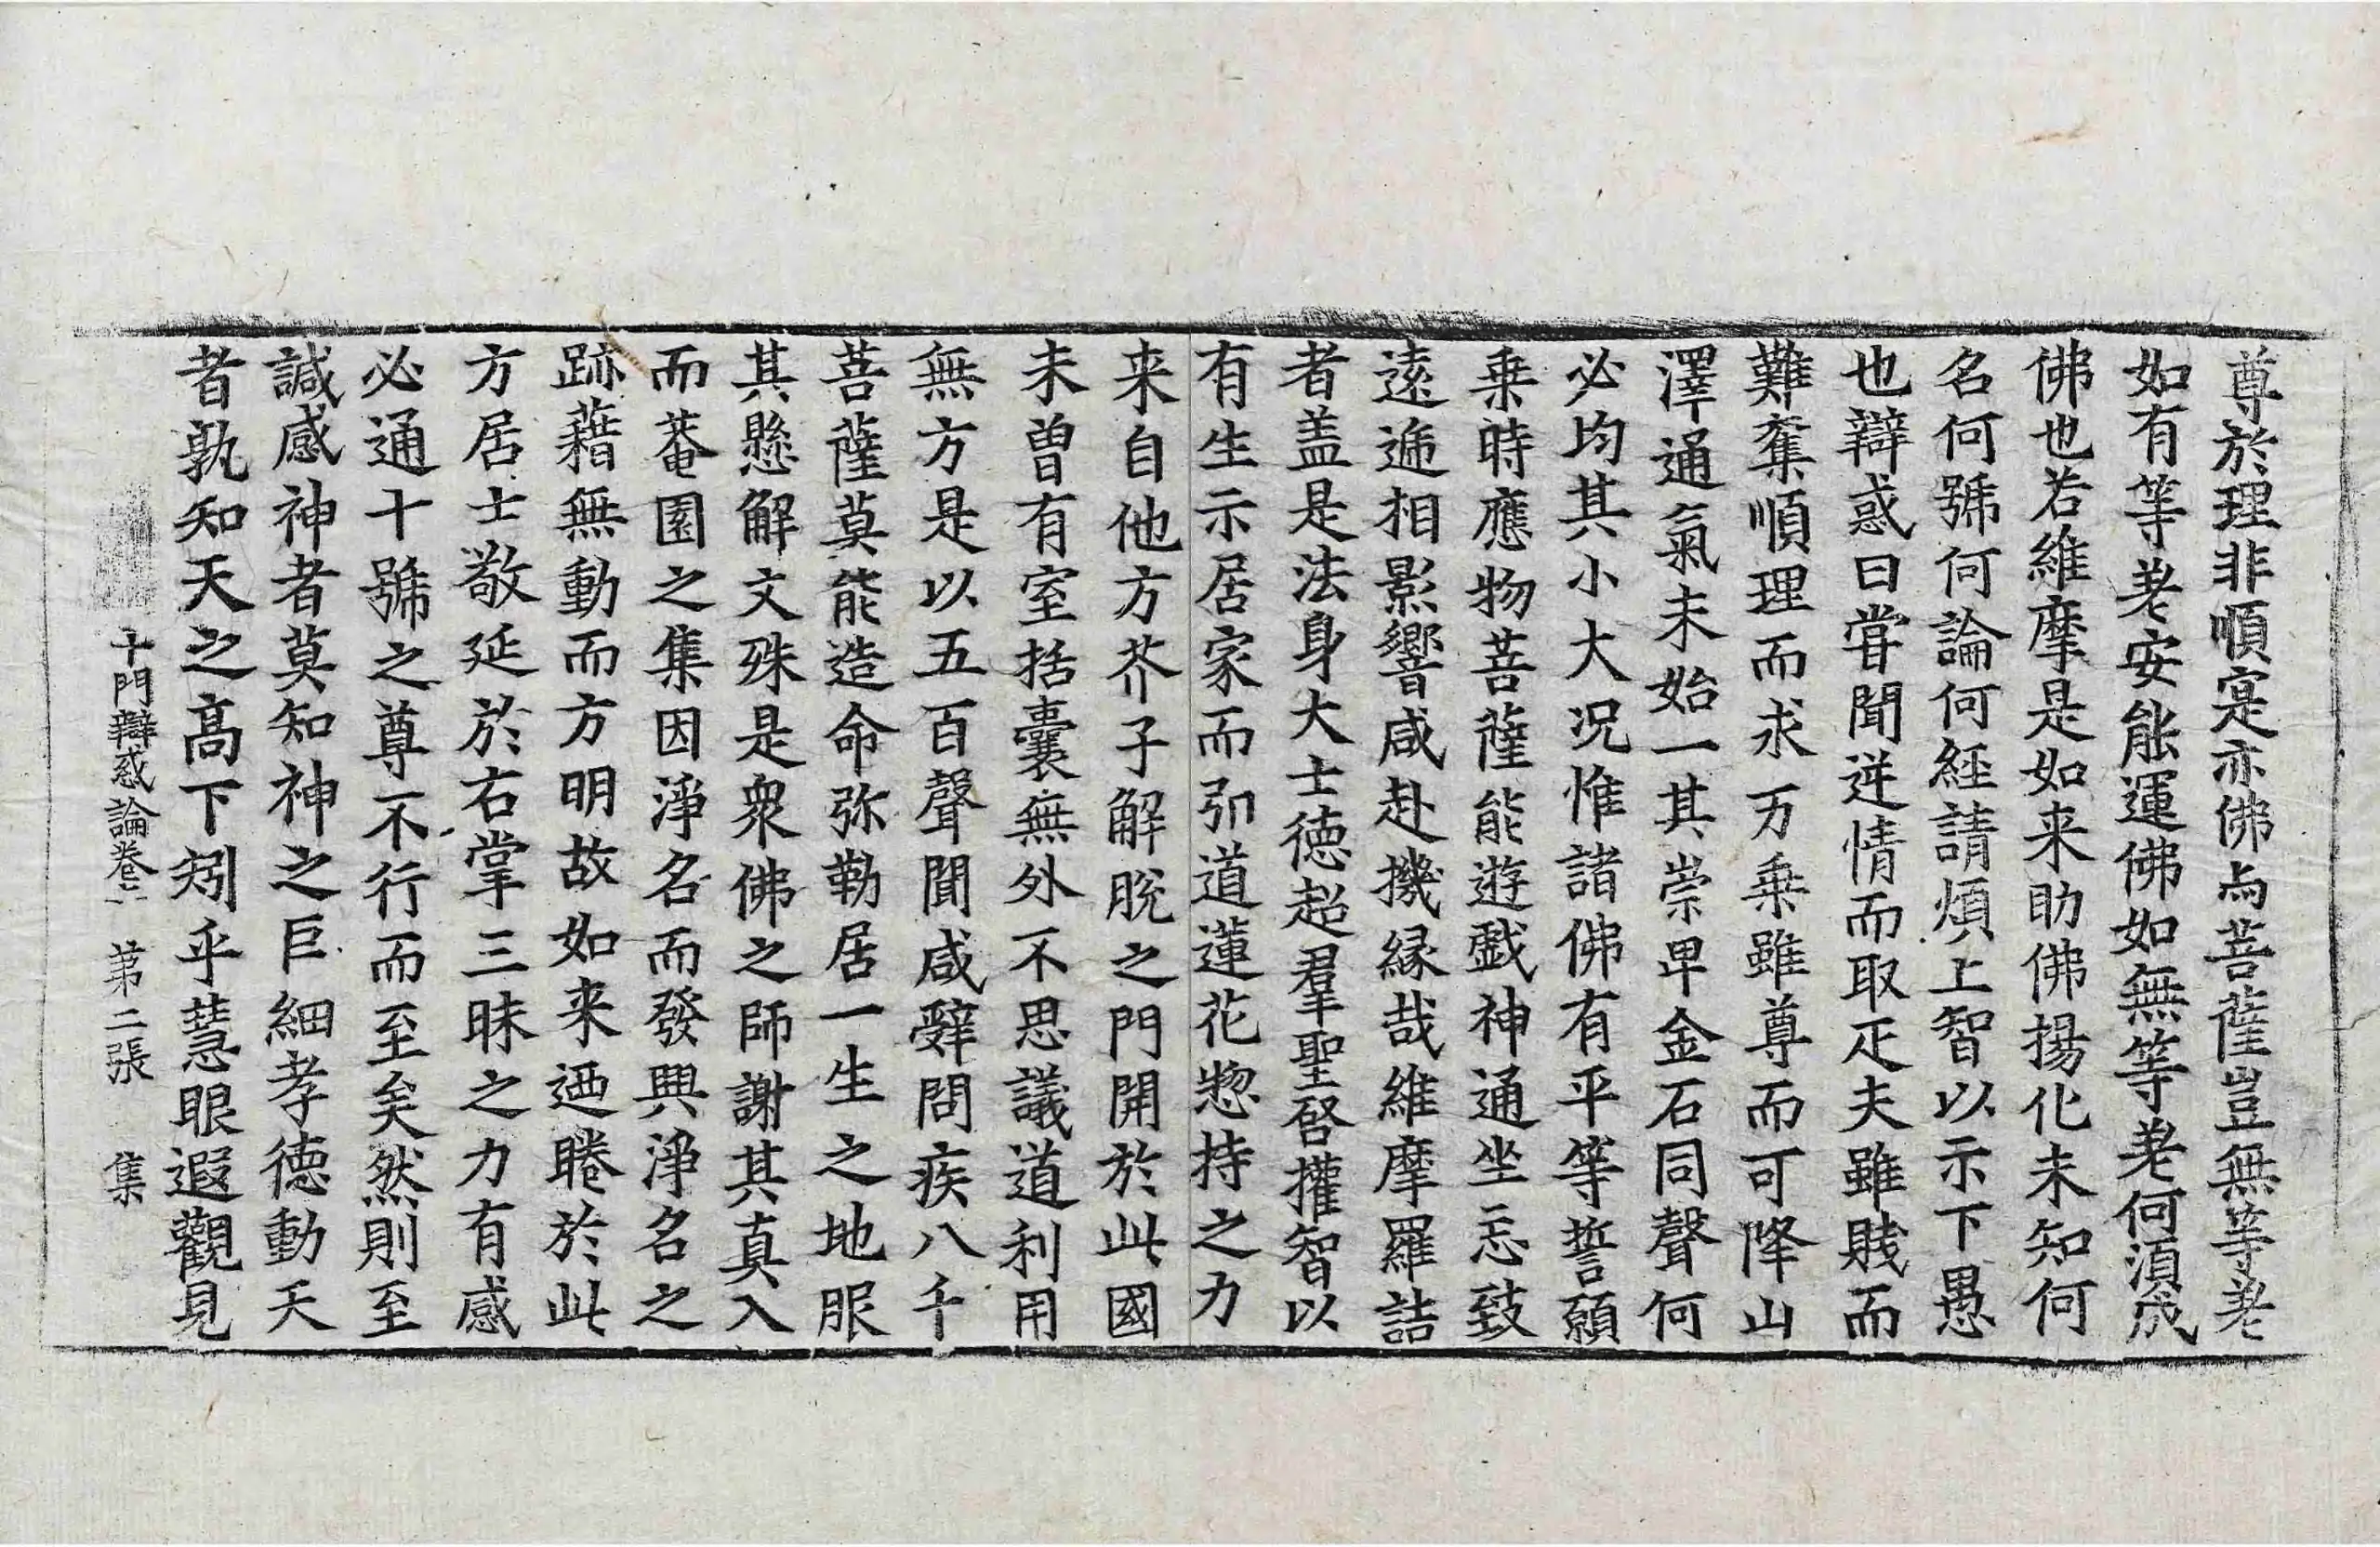 尊於理非順寔亦佛為菩薩豈無等老
如有等老安能運佛如無等老何須成
佛也若維摩是如来助佛揚化未知何
名何號何論何經請煩上智以示下愚
也辯惑曰甞聞逆情而取疋夫雖賎而
難奪順理而求万乗雖尊而可降山
澤通氣未始一其崇卑金石同聲何
必均其小大況惟諸佛有平等誓願
乗時應物菩薩能遊戲神通坐忘致
遠遞相影響咸赴機縁哉維摩羅詰
者盖是法身大士徳超羣聖啓權智以
有生示居家而引道蓮花惣持之力
来自他方芥子解脫之門開於此國
未曽有室括囊無外不思議道利用
無方是以五百聲聞咸辤問疾八千
菩薩莫能造命弥勒居一生之地服
其懸解文殊是衆佛之師謝其真入
而菴園之集因淨名而發興淨名之
跡藉無動而方明故如来迺睠於此
方居士敬延於右掌三昧之力有感
必通十號之尊不行而至矣然則至
諴感神者莫知神之巨細孝徳動天
者孰知天之髙下矧乎慧眼遐觀見
十門辯惑論卷二 第二張 集